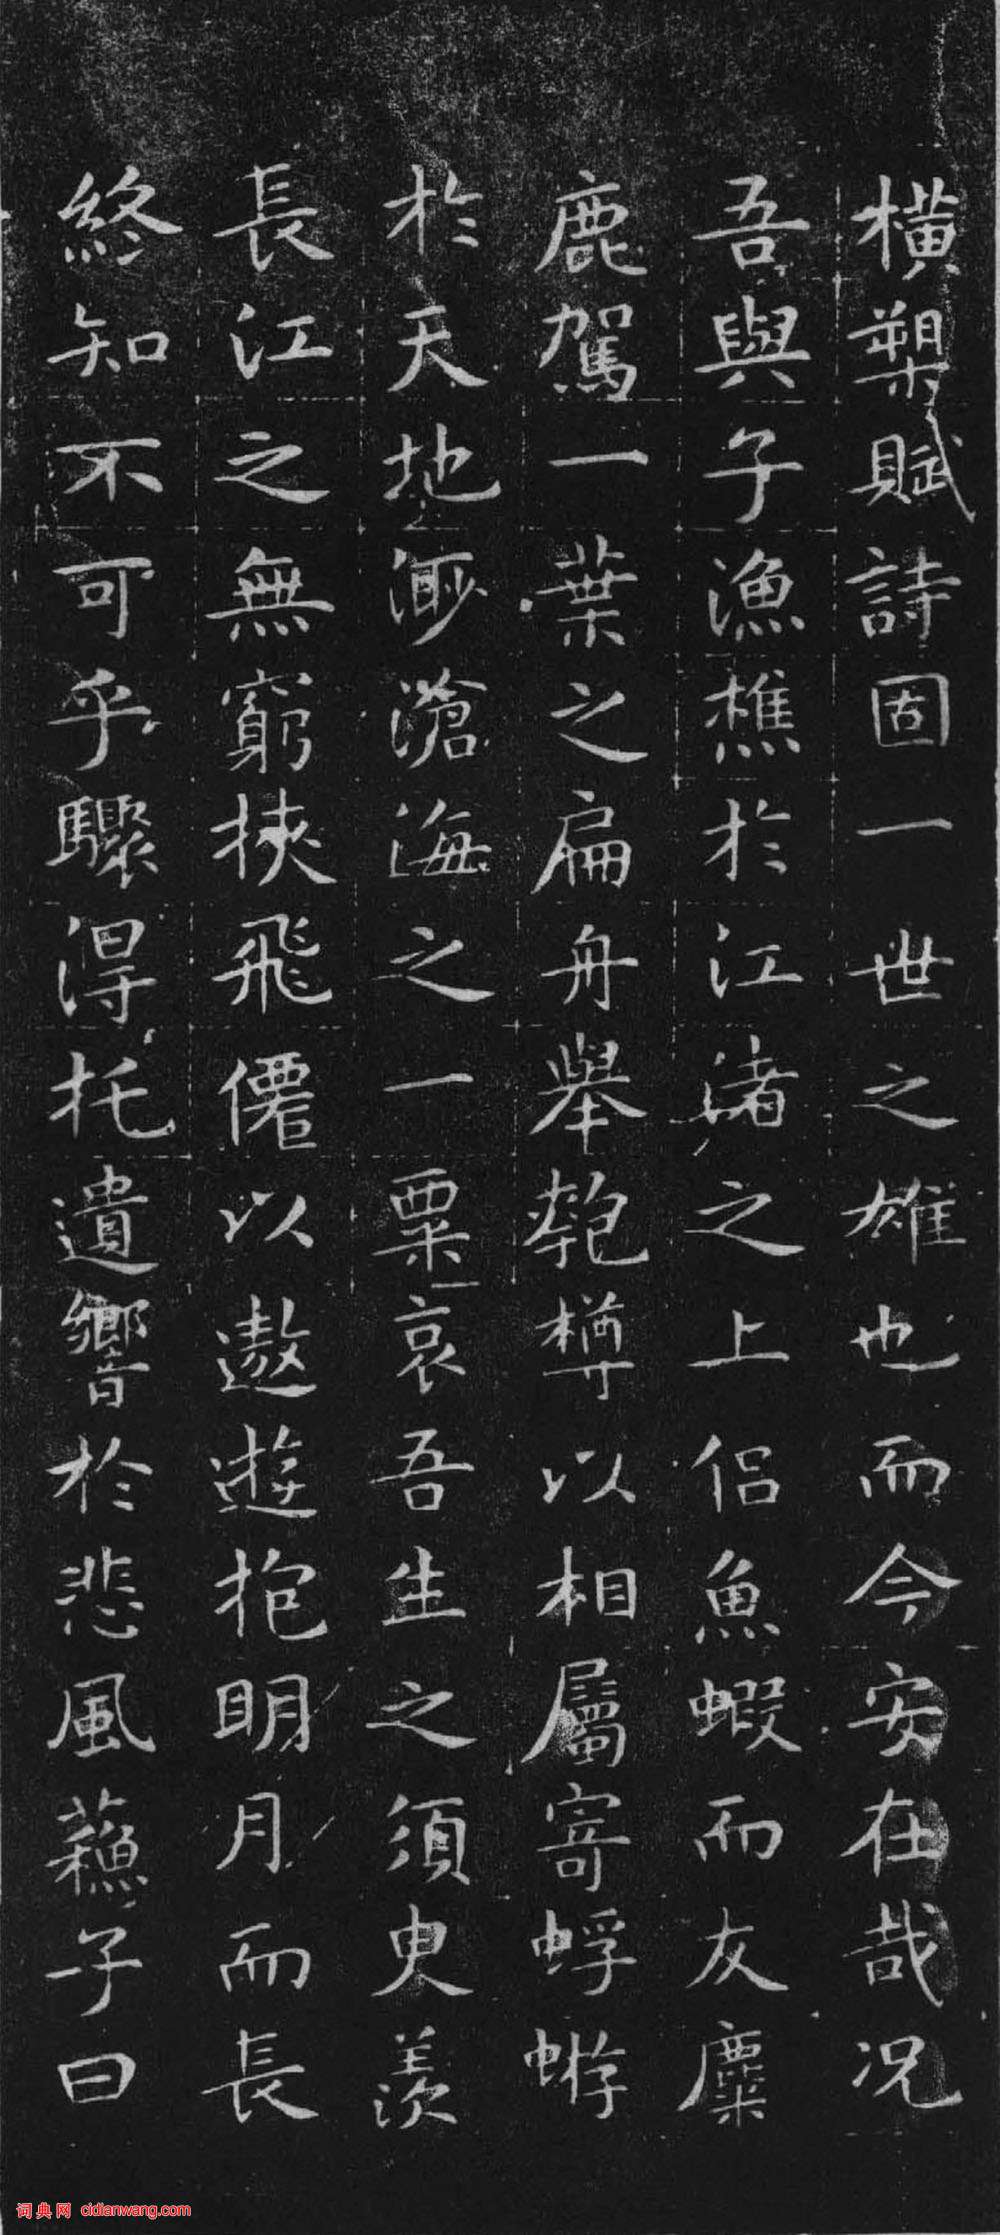 橫槊賦詩固一世之雄也而今安在哉况
吾與子漁樵於江渚之上侣魚蝦而友麋
鹿駕一葉之扁舟舉匏樽以相屬寄蜉蝣
於天地渺滄海之一粟哀吾生之須臾羨
長江之無窮挾飛僊以遨遊抱明月而長
終知不可乎驟得托遺響於悲風蘓子曰
词典网 cidianwang.com